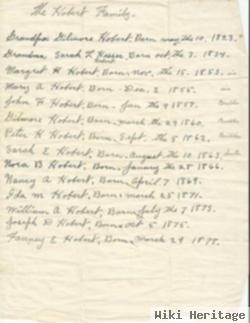 The Hobert Family.
Grandpa Gilmore Hobert, Born may the 10, 1823.
Grandma, Sarah L Hobert, Born oct. the 3. 1834.
Margret H Hobert, Born, Nov. the 15. 1853.
Mary A Hobert, Born - Dec. 2 1855.
John F Hobert, Born - Jan the 9 1857.
Gilmore Hobert, Born, march the 29 1860.
Peter H Hobert, Born, Sept. the 5 1862.
Sarah E Hobert, Born, August the 10. 1863,
Nora B Hobert, Born, January the 28 1866.
Nancy A Hobert, Born, April 7 1869.
Ida M Hobert, Born, march 25 1871.
William A Hobert, Born, July the 7 1873.
Joseph D Hobert, Born, Oct 5. 1875.
Fanney E Hobert, Born, march 29 1878.
Wiki Heritage